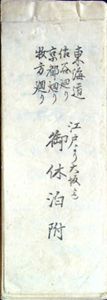 東海道
佐谷廻り
京都廻り
牧方廻り
江戸より大坂迄
御休泊附